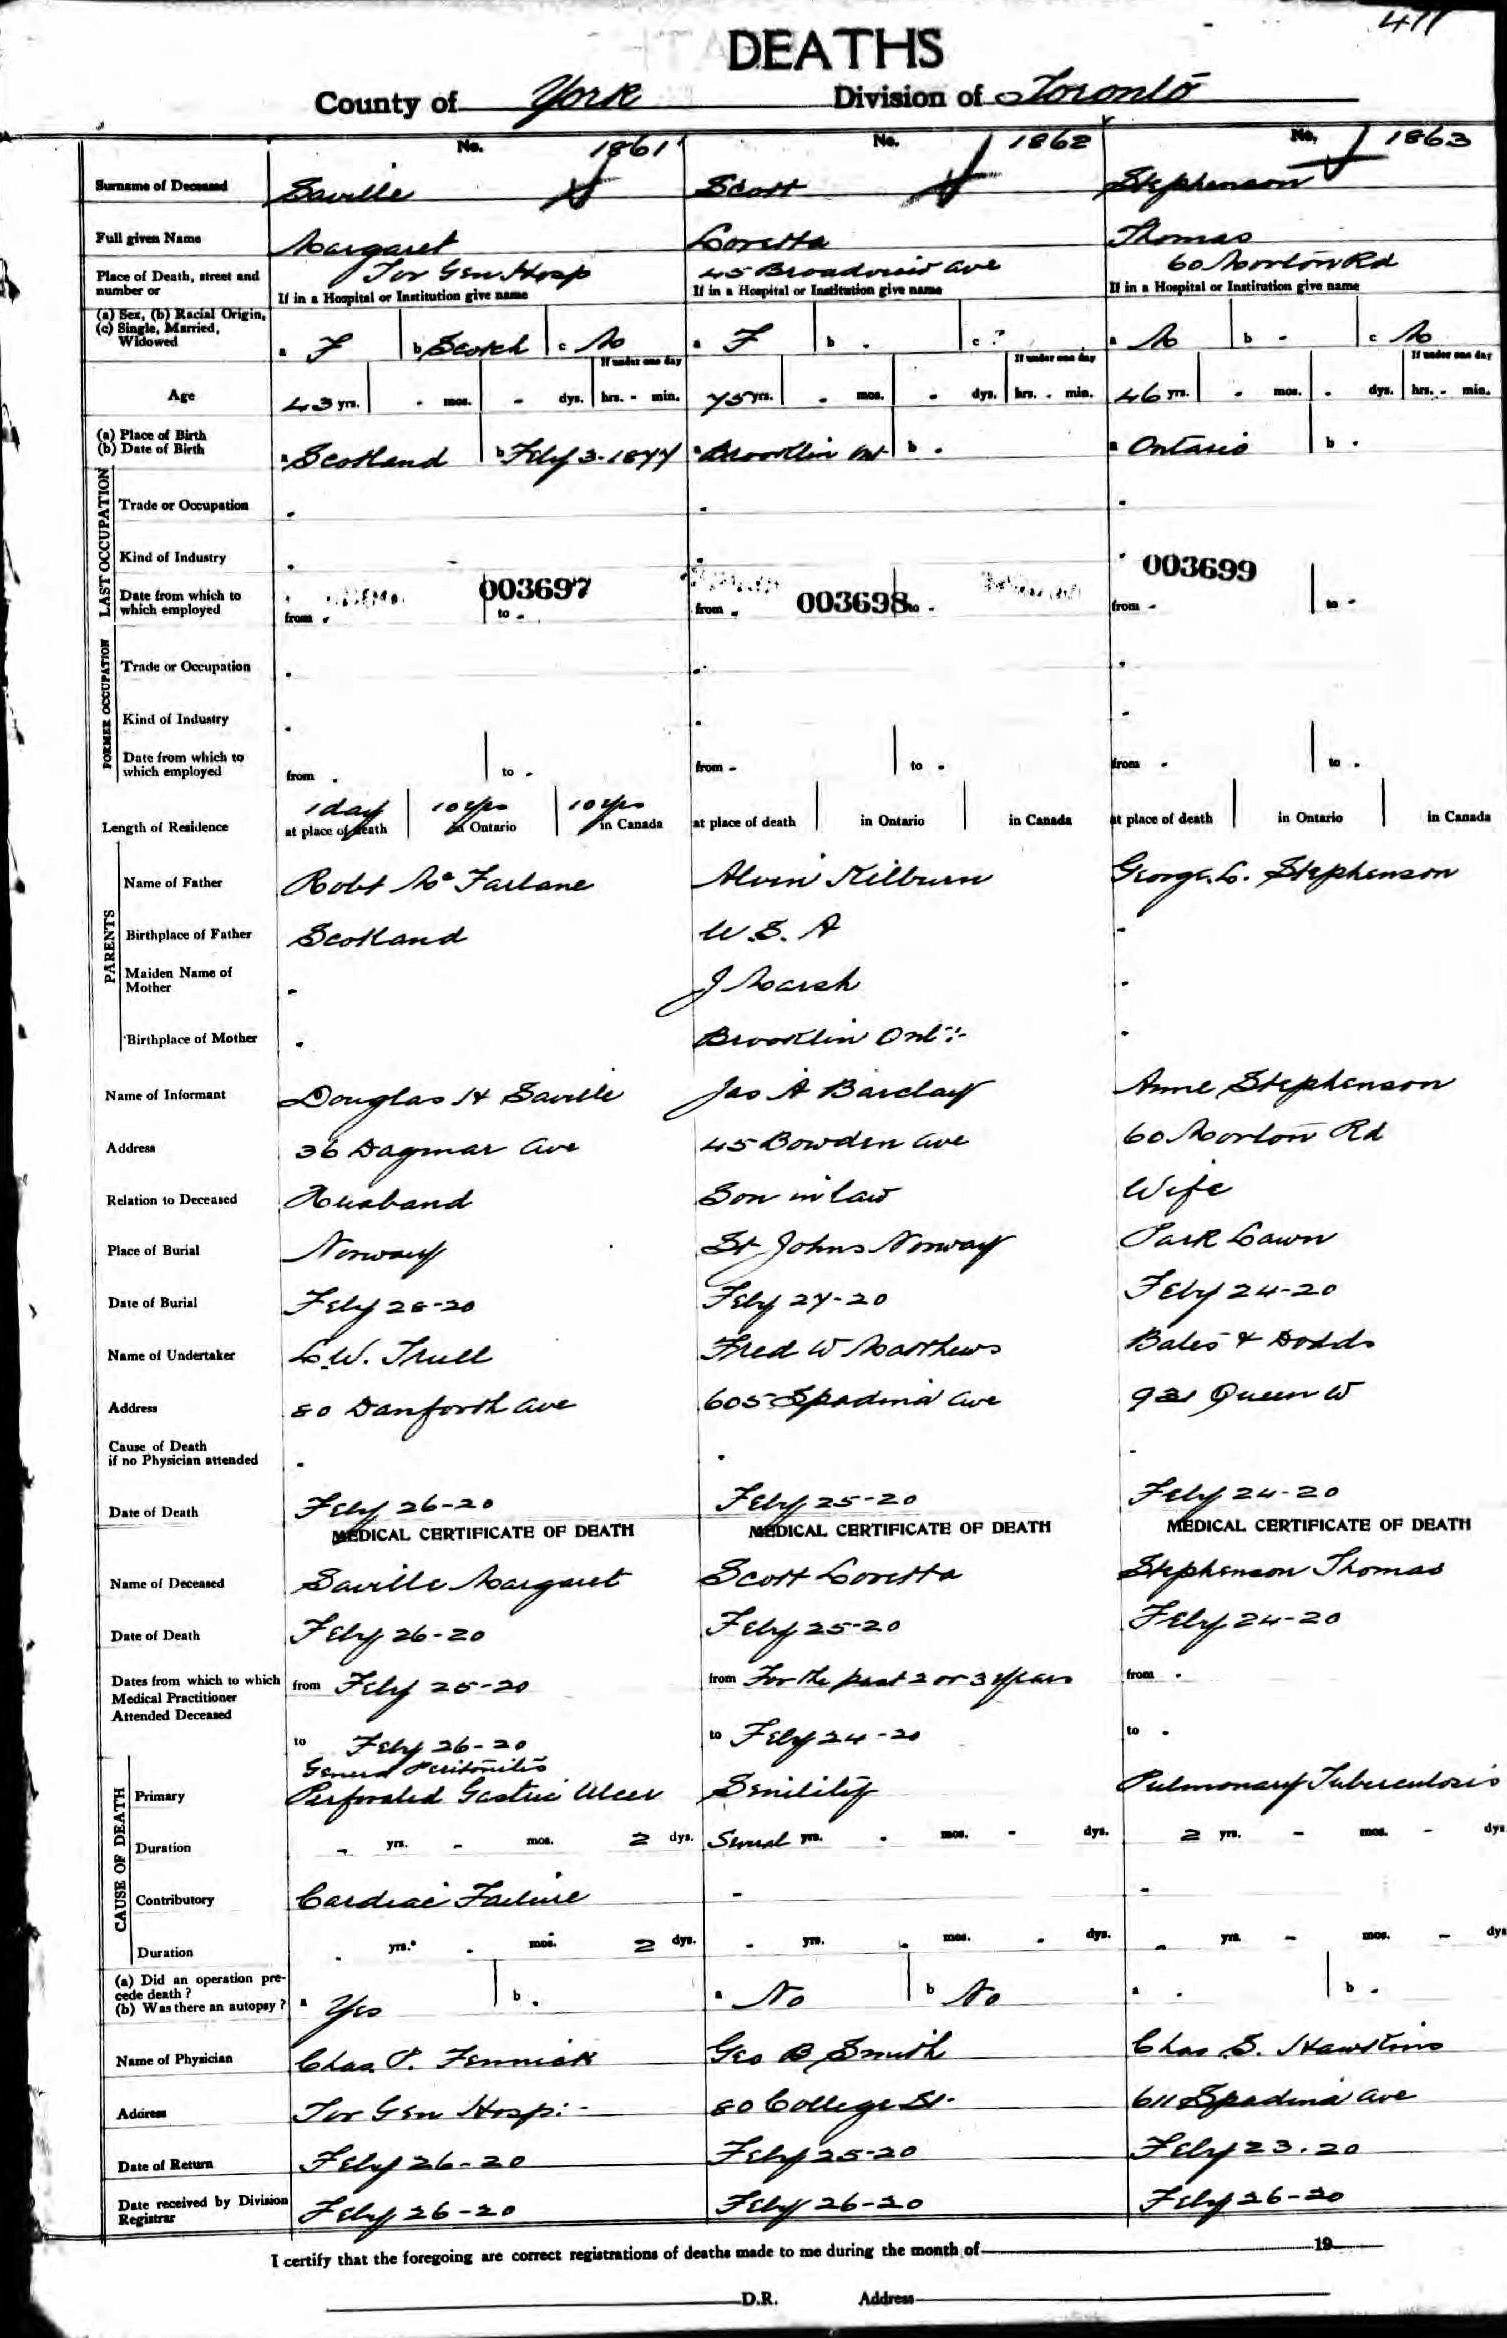 411
DEATHS
County of York Division of Toronto
No. 1861 No. 1862 No. 1863
Surname of Deceased Saville Scott Stephenson
Full given Name Margaret Loretta Thomas
Place of Death, street and number or Tor Gen Hosp 45 Broadview Ave 60 Morton Rd
If in a Hospital or Institution give name If in a Hospital or Institution give name If in a Hospital or Institution give name
(a) Sex, (b) Racial Origin, (c) Single, Married, Widowed a F b Scotch c M a F b - c ? a M b - c M
If under one day If under one day If under one day
Age 43 yrs. - mos. - dys. hrs. - min. 75 yrs. - mos. - dys. hrs. - min. 46 yrs. - mos. - dys. hrs. - min.
(a) Place of Birth (b) Date of Birth a Scotland b Feby 3-1877 a Brooklin Ont b - a Ontario b -
LAST OCCUPATION
Trade or Occupation - - -
Kind of Industry - - -
003697 003698 003699
Date from which to which employed from - to - from - to - from - to -
FORMER OCCUPATION
Trade or Occupation - - -
Kind of Industry - - -
Date from which to which employed from - to - from - to - from - to -
Length of Residence 1 day at place of death 10 yrs in Ontario 10 yrs in Canada at place of death in Ontario in Canada at place of death in Ontario in Canada
PARENTS
Name of Father Robt Mc Farlane Alvin Kilburn George L. Stephenson
Birthplace of Father Scotland U.S.A -
Maiden Name of Mother - J Marsh -
Birthplace of Mother - Brooklin Ont -
Name of Informant Douglas H Saville Jas A Barclay Anne Stephenson
Address 36 Dagmar Ave 45 Bowden Ave 60 Morton Rd
Relation to Deceased Husband Son in law Wife
Place of Burial Norway St Johns Norway Park Lawn
Date of Burial Feby 28-20 Feby 27-20 Feby 24-20
Name of Undertaker L.W. Trull Fred W Matthews Bates & Dodds
Address 80 Danforth Ave 605 Spadina Ave 931 Queen W
Cause of Death if no Physician attended - - -
Date of Death Feby 26-20 Feby 25-20 Feby 24-20
MEDICAL CERTIFICATE OF DEATH MEDICAL CERTIFICATE OF DEATH MEDICAL CERTIFICATE OF DEATH
Name of Deceased Saville Margaret Scott Loretta Stephenson Thomas
Date of Death Feby 26-20 Feby 25-20 Feby 24-20
Dates from which to which Medical Practitioner Attended Deceased from Feby 25-20 from For the past 2 or 3 years from -
to Feby 26-20 to Feby 24-20 to -
CAUSE OF DEATH
General Peritonitis
Primary Perforated Gastric Ulcer Senility Pulmonary Tuberculosis
Duration - yrs. - mos. 2 dys. Several yrs. - mos. - dys. 2 yrs. - mos. - dys
Contributory Cardiac Failure - -
Duration - yrs. - mos. 2 dys. - yrs. - mos. - dys. - yrs. - mos. - dys
(a) Did an operation precede death? (b) Was there an autopsy? a Yes b - a No b No a - b -
Name of Physician Chas. P. Fenwick Geo B Smith Chas S. Hawkins
Address Tor Gen Hosp:- 80 College St- 611 Spadina Ave
Date of Return Feby 26-20 Feby 25-20 Feby 23-20
Date received by Division Registrar Feby 26-20 Feby 26-20 Feby 26-20
I certify that the foregoing are correct registrations of deaths made to me during the month of 19
D.R. Address